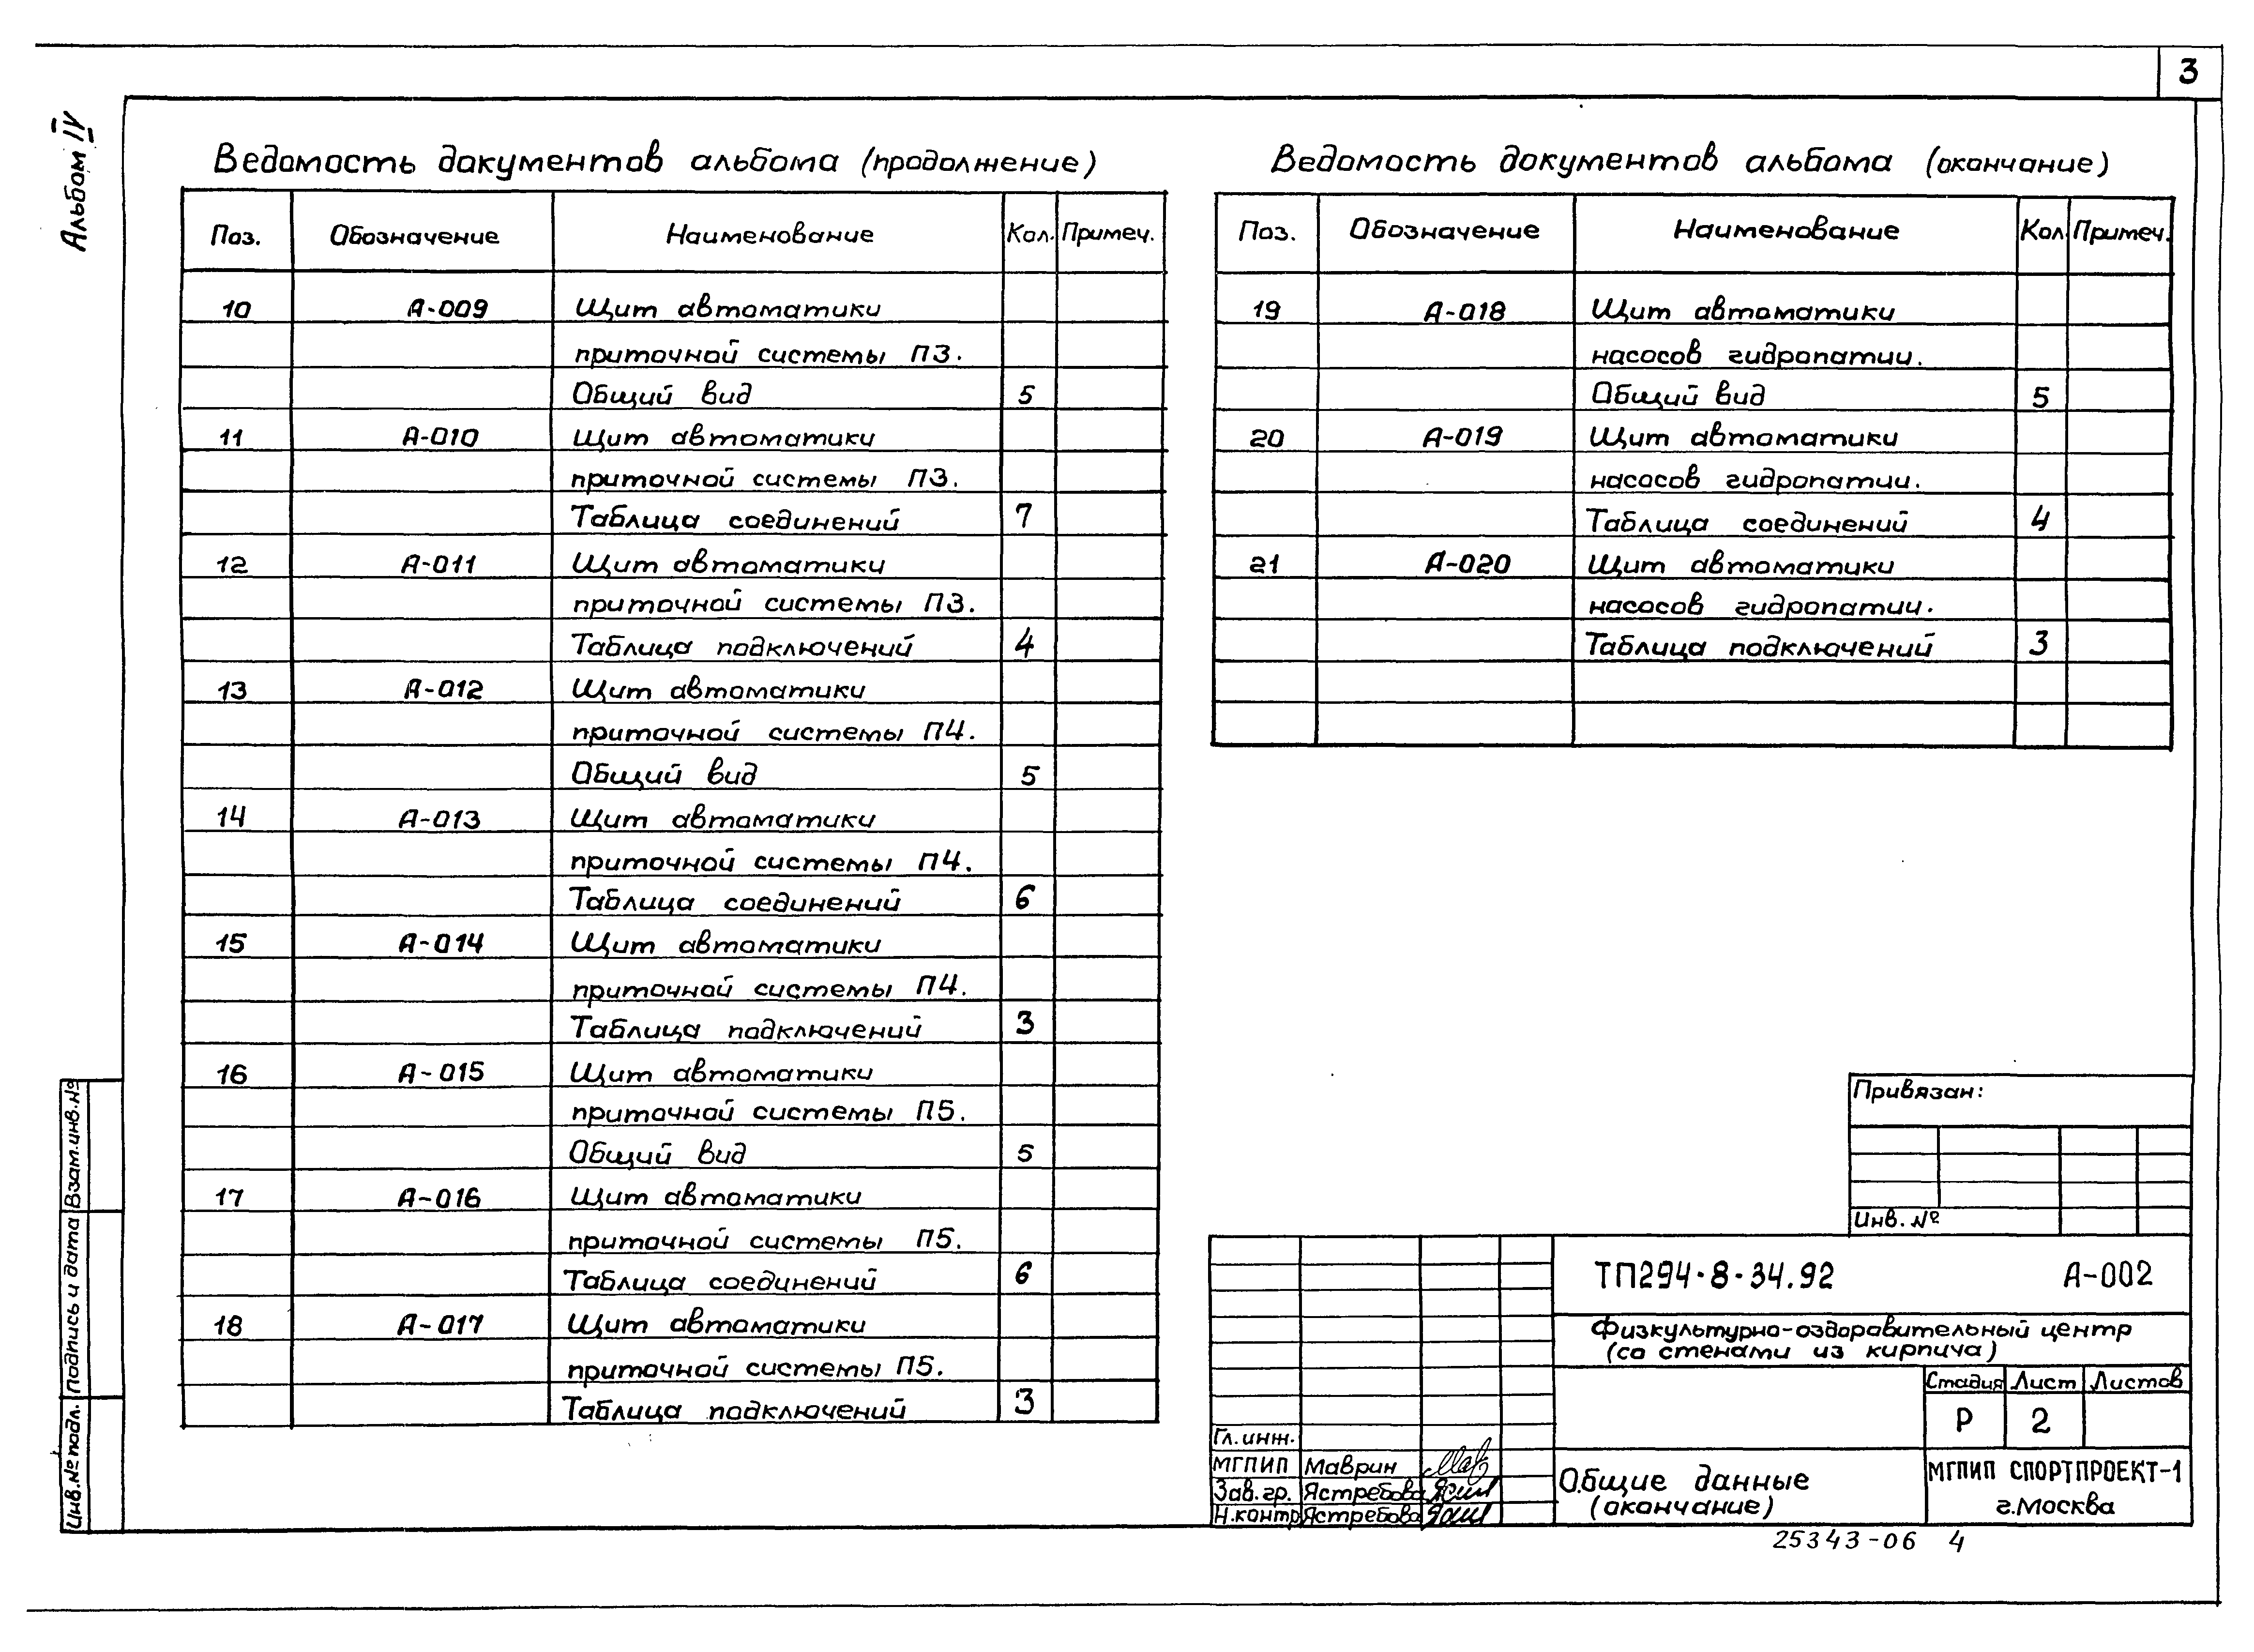 3
Альбом IV
Ведомость документов альбома (продолжение)
Поз. Обозначение Наименование Кол. Примеч.
10 А-009 Щит автоматики
приточной системы П3.
Общий вид 5
11 А-010 Щит автоматики
приточной системы П3.
Таблица соединений 7
12 А-011 Щит автоматики
приточной системы П3.
Таблица подключений 4
13 А-012 Щит автоматики
приточной системы П4.
Общий вид 5
14 А-013 Щит автоматики
приточной системы П4.
Таблица соединений 6
15 А-014 Щит автоматики
приточной системы П4.
Таблица подключений 3
16 А-015 Щит автоматики
приточной системы П5.
Общий вид 5
17 А-016 Щит автоматики
приточной системы П5.
Таблица соединений 6
18 А-017 Щит автоматики
приточной системы П5.
Таблица подключений 3
Ведомость документов альбома (окончание)
Поз. Обозначение Наименование Кол. Примеч.
19 А-018 Щит автоматики
насосов гидропатии.
Общий вид 5
20 А-019 Щит автоматики
насосов гидропатии.
Таблица соединений 4
21 А-020 Щит автоматики
насосов гидропатии.
Таблица подключений 3
Привязан:
Инв. №
ТП294·8·34.92 А-002
Физкультурно-оздоровительный центр
(со стенами из кирпича)
Стадия Лист Листов
Р 2
Гл. инж.
МГПИП Маврин
Зав. гр. Ястребова
Н.контр Ястребова
Общие данные
(окончание)
МГПИП СПОРТПРОЕКТ-1
г.Москва
25343-06 4
Взам.инв.№
Подпись и дата
Инв.№ подл.